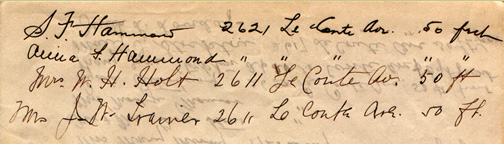 S. F. Hammond 2621 Le Conte Av. 50 feet
Anna S. Hammond " " " " "
Mrs. W. H. Holt 2611 Le Conte Av. 50 ft
Mrs J. W. Trainer 2611 Le Conte Ave. 50 ft.